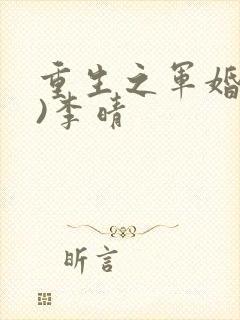 重生之军婚
)李晴
昕言